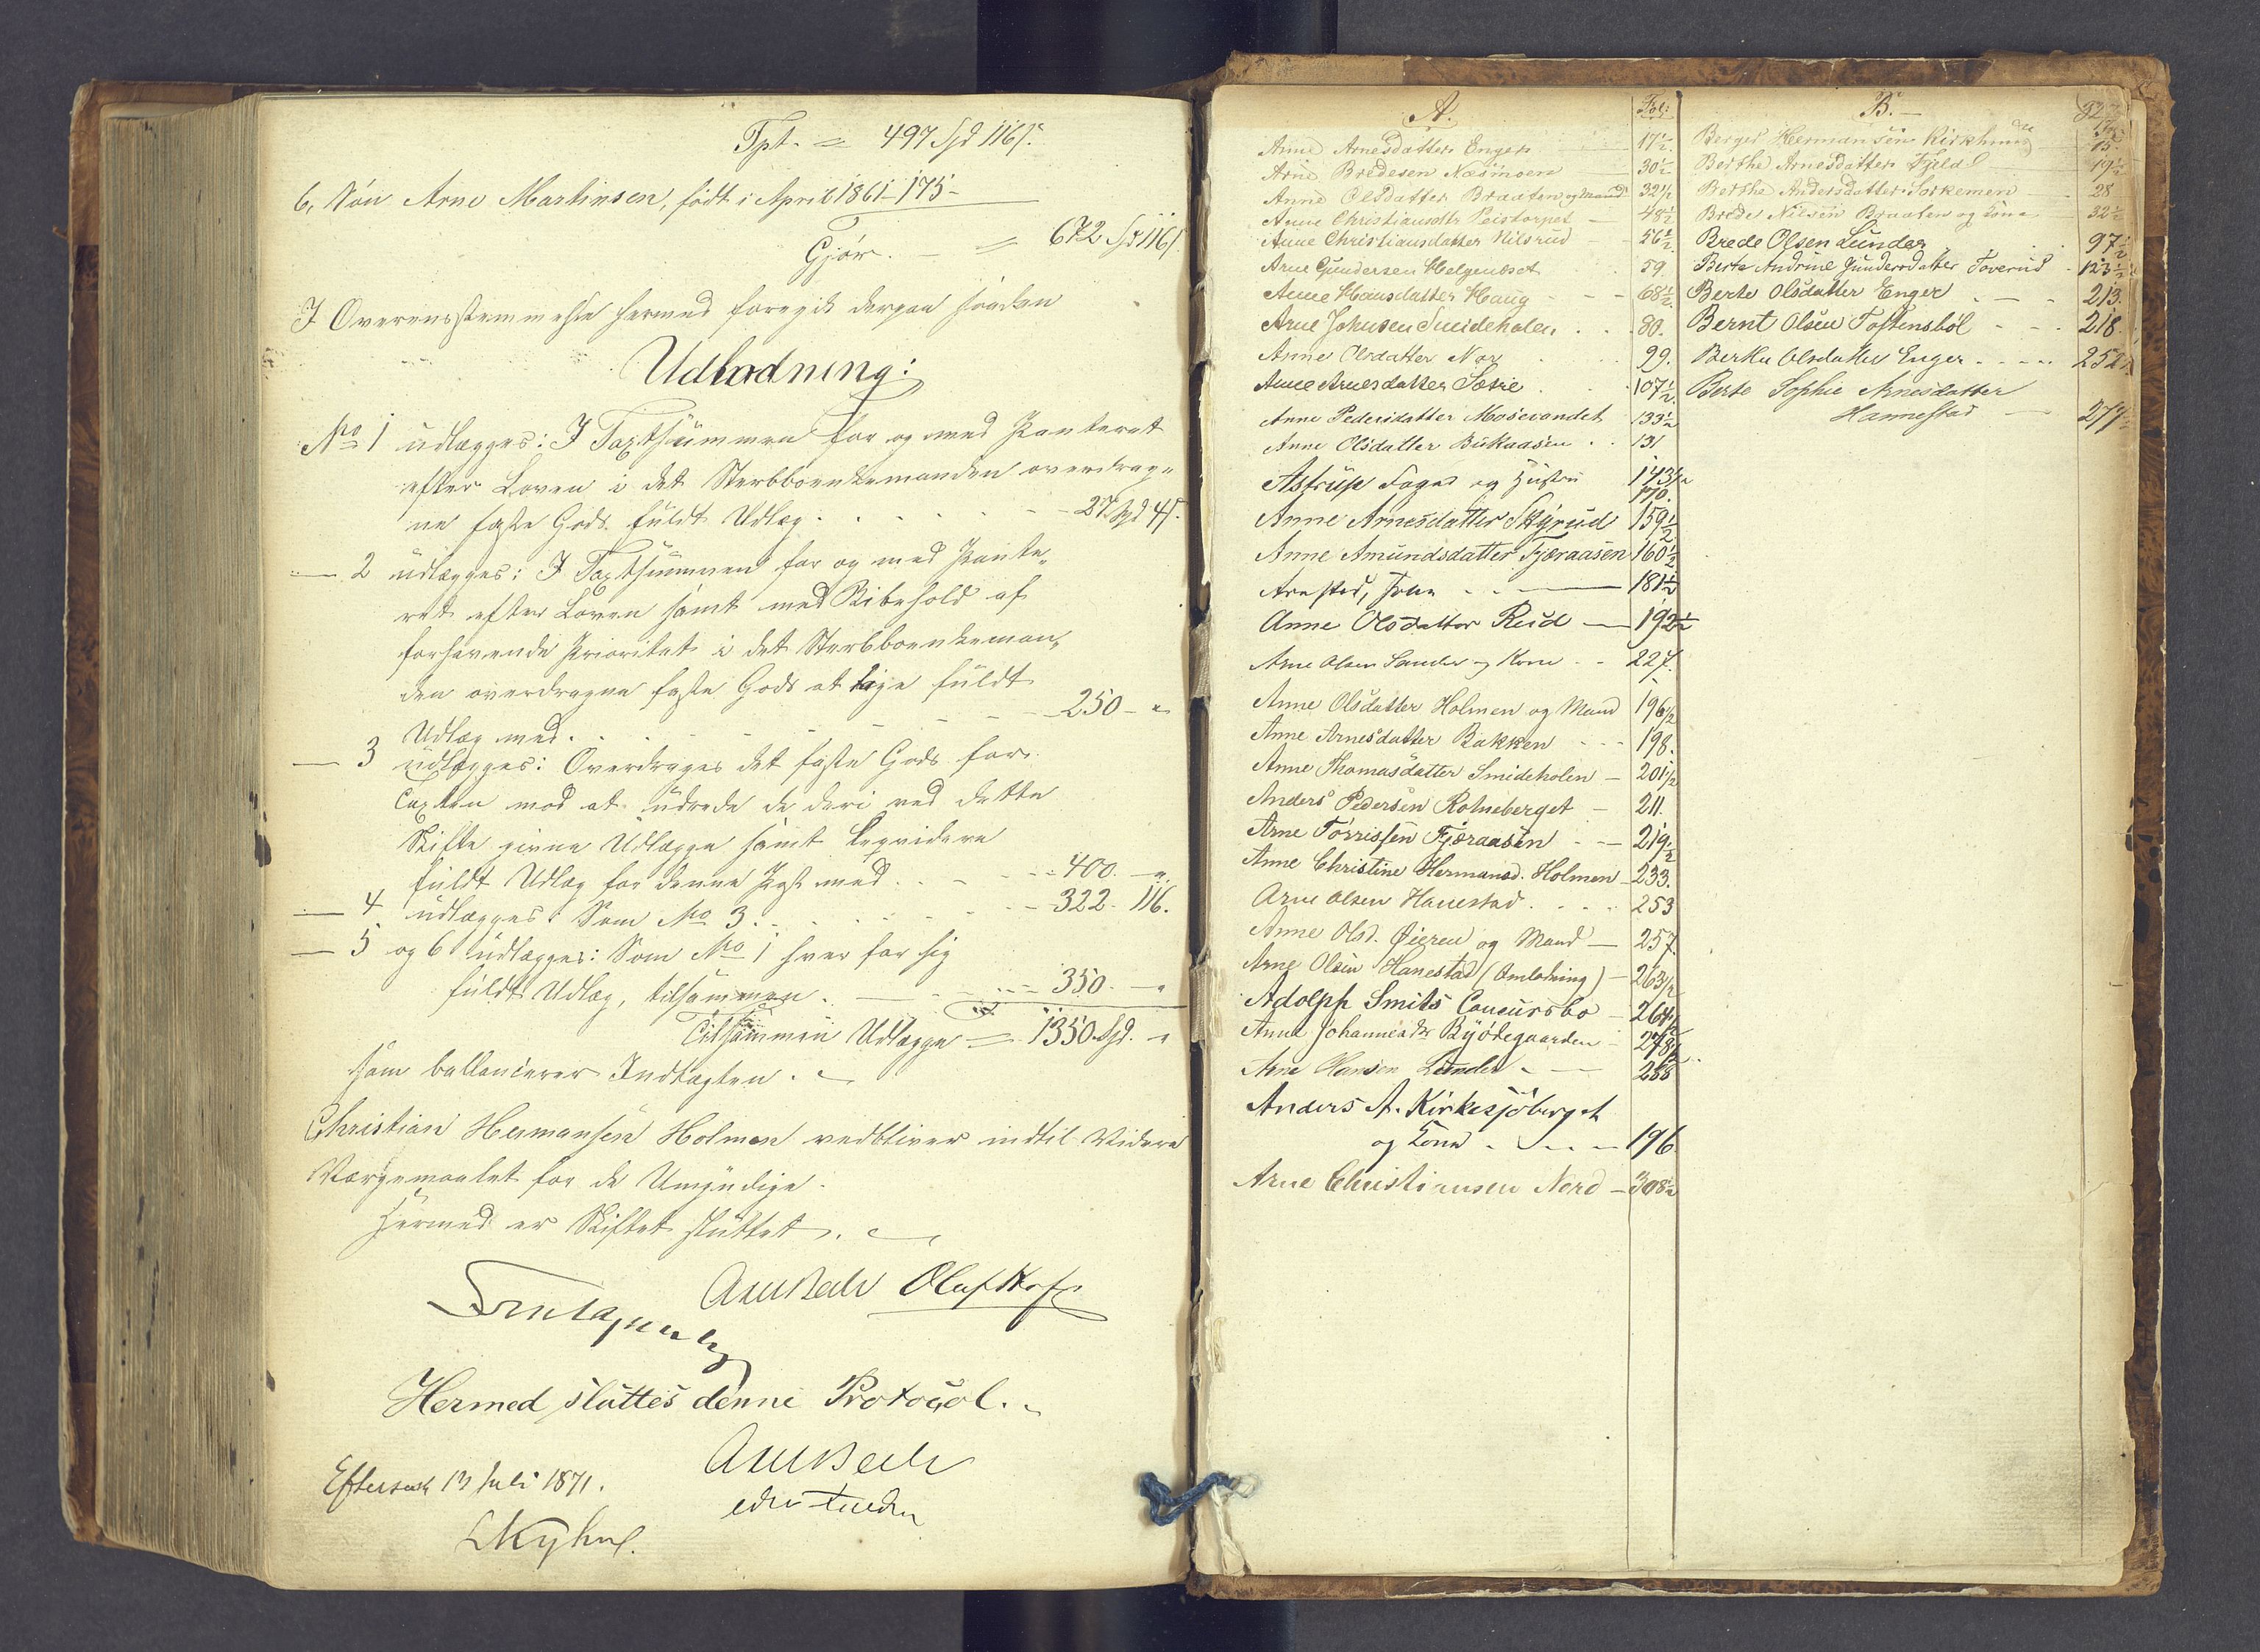 Tpt. = 497 Spd 116 s.
6, Søn Arne Martinsen, født i April 1861 - 175 -
Gjør. - = 672 Spd 116 s
I Overensstemmelse hermed foregik derpaa saadan
Udlodning:
No 1 udlægges: I Taxtsummen for og med Panteret
efter Loven i det Sterbboenkemanden overdrag-
ne faste Gods fuldt Udlæg . . . . 27 Spd 4 s.
— 2 udlægges: I Taxtsummen for og med Pante-
ret efter Loven samt med Bibehold af
forhavende Prioritet i det Sterbboenkeman-
den overdragne faste Gods at lige fuldt
Udlæg med . . . . 250 - "
— 3 udlægges: Overdrages det faste Gods for
Taxten mod at udrede de deri ved dette
Skifte givne Udlægge samt liqvidere
fuldt Udlæg for denne Post med . . . 400. - "
— 4 udlægges: Som No 3. . . . 322. 116.
— 5 og 6 udlægges: Som No 1 hver for sig
fuldt Udlæg, tilsammen . — 350. — "
Tilsammen Udlægge = 1350 Spd. - "
som ballancerer Indtægten. -
Christian Hermansen Holmen vedbliver indtil Videre
Værgemaalet for de Umyndige.
Hermed er Skiftet sluttet. -
Olaf
Hermed sluttes denne Protocol. -
Efterseet 13 Juli 1871.
A. Fol:
Anne Arnesdatter Enger 17½.
Arne Bredesen Næsmoen 30½
Anne Olsdatter Braaten og Mand 32½
Anne Christiansdtr Peistorpet — 48½
Anne Christiansdatter Nilsrud - 56½
Arne Gundersen Helgenæset . . 59.
Anne Hansdatter Haug - - - 68½
Arne Johnsen Smideholen . . . 80.
Anne Olsdatter Nor . . 99.
Anne Arnesdatter Sætre . . 107½.
Anne Pedersdatter Mosevandet 133½
Anne Olsdatter Bukaasen . . 131
Astrup Foged og Hustru 143½
170.
Anne Arnesdatter Skyrud 159½
Anne Amundsdatter Fjæraasen 160½
Arnestad, - - — 181½
Anne Olsdatter Rud — 192½
Arne Olsen Sander og Kone - - 227.
Anne Olsdatter Holmen og Mand 196½
Anne Arnesdatter Bakken - - - 198.
Anne Thomasdatter Smideholen — 201½
Anders Pedersen Rotneberget — 211.
Arne Torrissen Fjæraasen - - - 219½
Anne Christine Hermansd. Holmen - 233.
Arne Olsen Hanestad . . . . 253
Anne Olsd. Øieren og Mand — 257
Arne Olsen Hanestad (Omlodning) - 263½
Adolph Smits Concursbo — 264½
Anne Johannesdtr Byødegaarden - 278½
Arne Hansen Lunder - — 288
Anders A. Kirkesjøberget
og Kone - - - - 196
Arne Christiansen Nord - 308½
B. - 327
Fol:
Berger Hermansen Kirkhun 15.
Berthe Arnesdatter Fjeld 19½
Berthe Andersdatter Sorkemoen - 28
Brede Nilsen Braaten og Kone 32½
Brede Olsen Lunder 97½
Berte Andrine Gundersdatter Toverud - 123½
Berte Olsdatter Enger - — - 213.
Bernt Olsen Toftensbøl - - - 218.
Berthe Olsdatter Enger - - - - 252
Berte Sophie Arnesdatter
Hannestad — 277